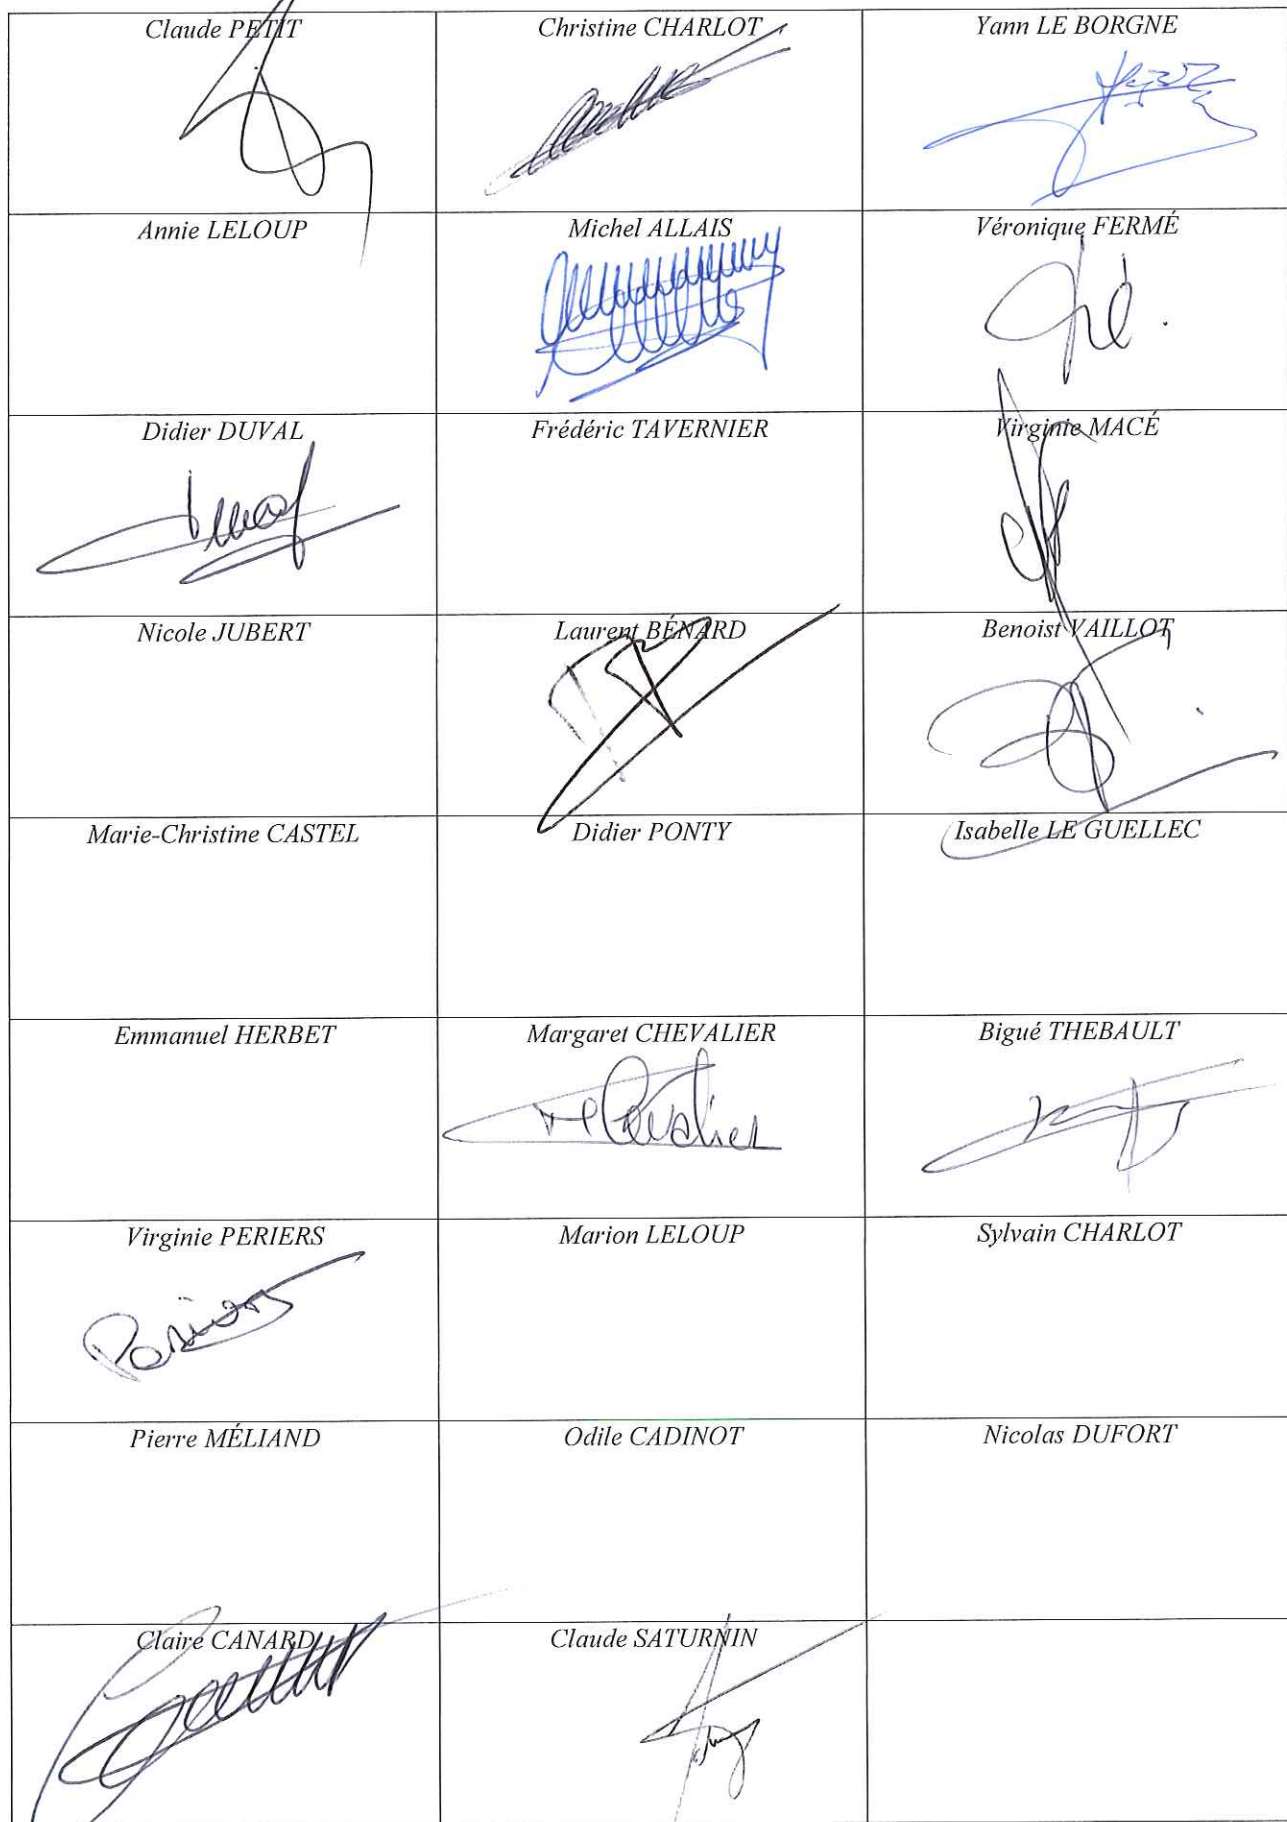 Claude PETIT
Christine CHARLOT
Yann LE BORGNE
Annie LELOUP
Michel ALLAIS
Véronique FERMÉ
Didier DUVAL
Frédéric TAVERNIER
Virginie MACÉ
Nicole JUBERT
Laurent BÉNARD
Benoist VAILLOT
Marie-Christine CASTEL
Didier PONTY
Isabelle LE GUELLEC
Emmanuel HERBET
Margaret CHEVALIER
Bigué THEBAULT
Virginie PERIERS
Marion LELOUP
Sylvain CHARLOT
Pierre MÉLIAND
Odile CADINOT
Nicolas DUFORT
Claire CANARD
Claude SATURNIN